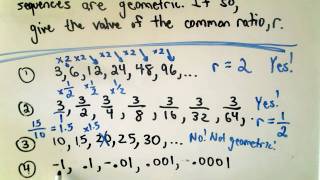 sequences are geometric. If so,
give the value of the common ratio, r.
×2 ×2 ×2 ×2 ×2
① 3, 6, 12, 24, 48, 96, ... r = 2 Yes!
×1/2 ×1/2 ×1/2
② 3/1, 3/2, 3/4, 3/8, 3/16, 3/32, 3/64, ... Yes! r = 1/2
15/10 = 1.5 ×1.5
③ 10, 15, 20, 25, 30, ... No! Not geometric!
④ -1, .1, -.01, .001, -.0001